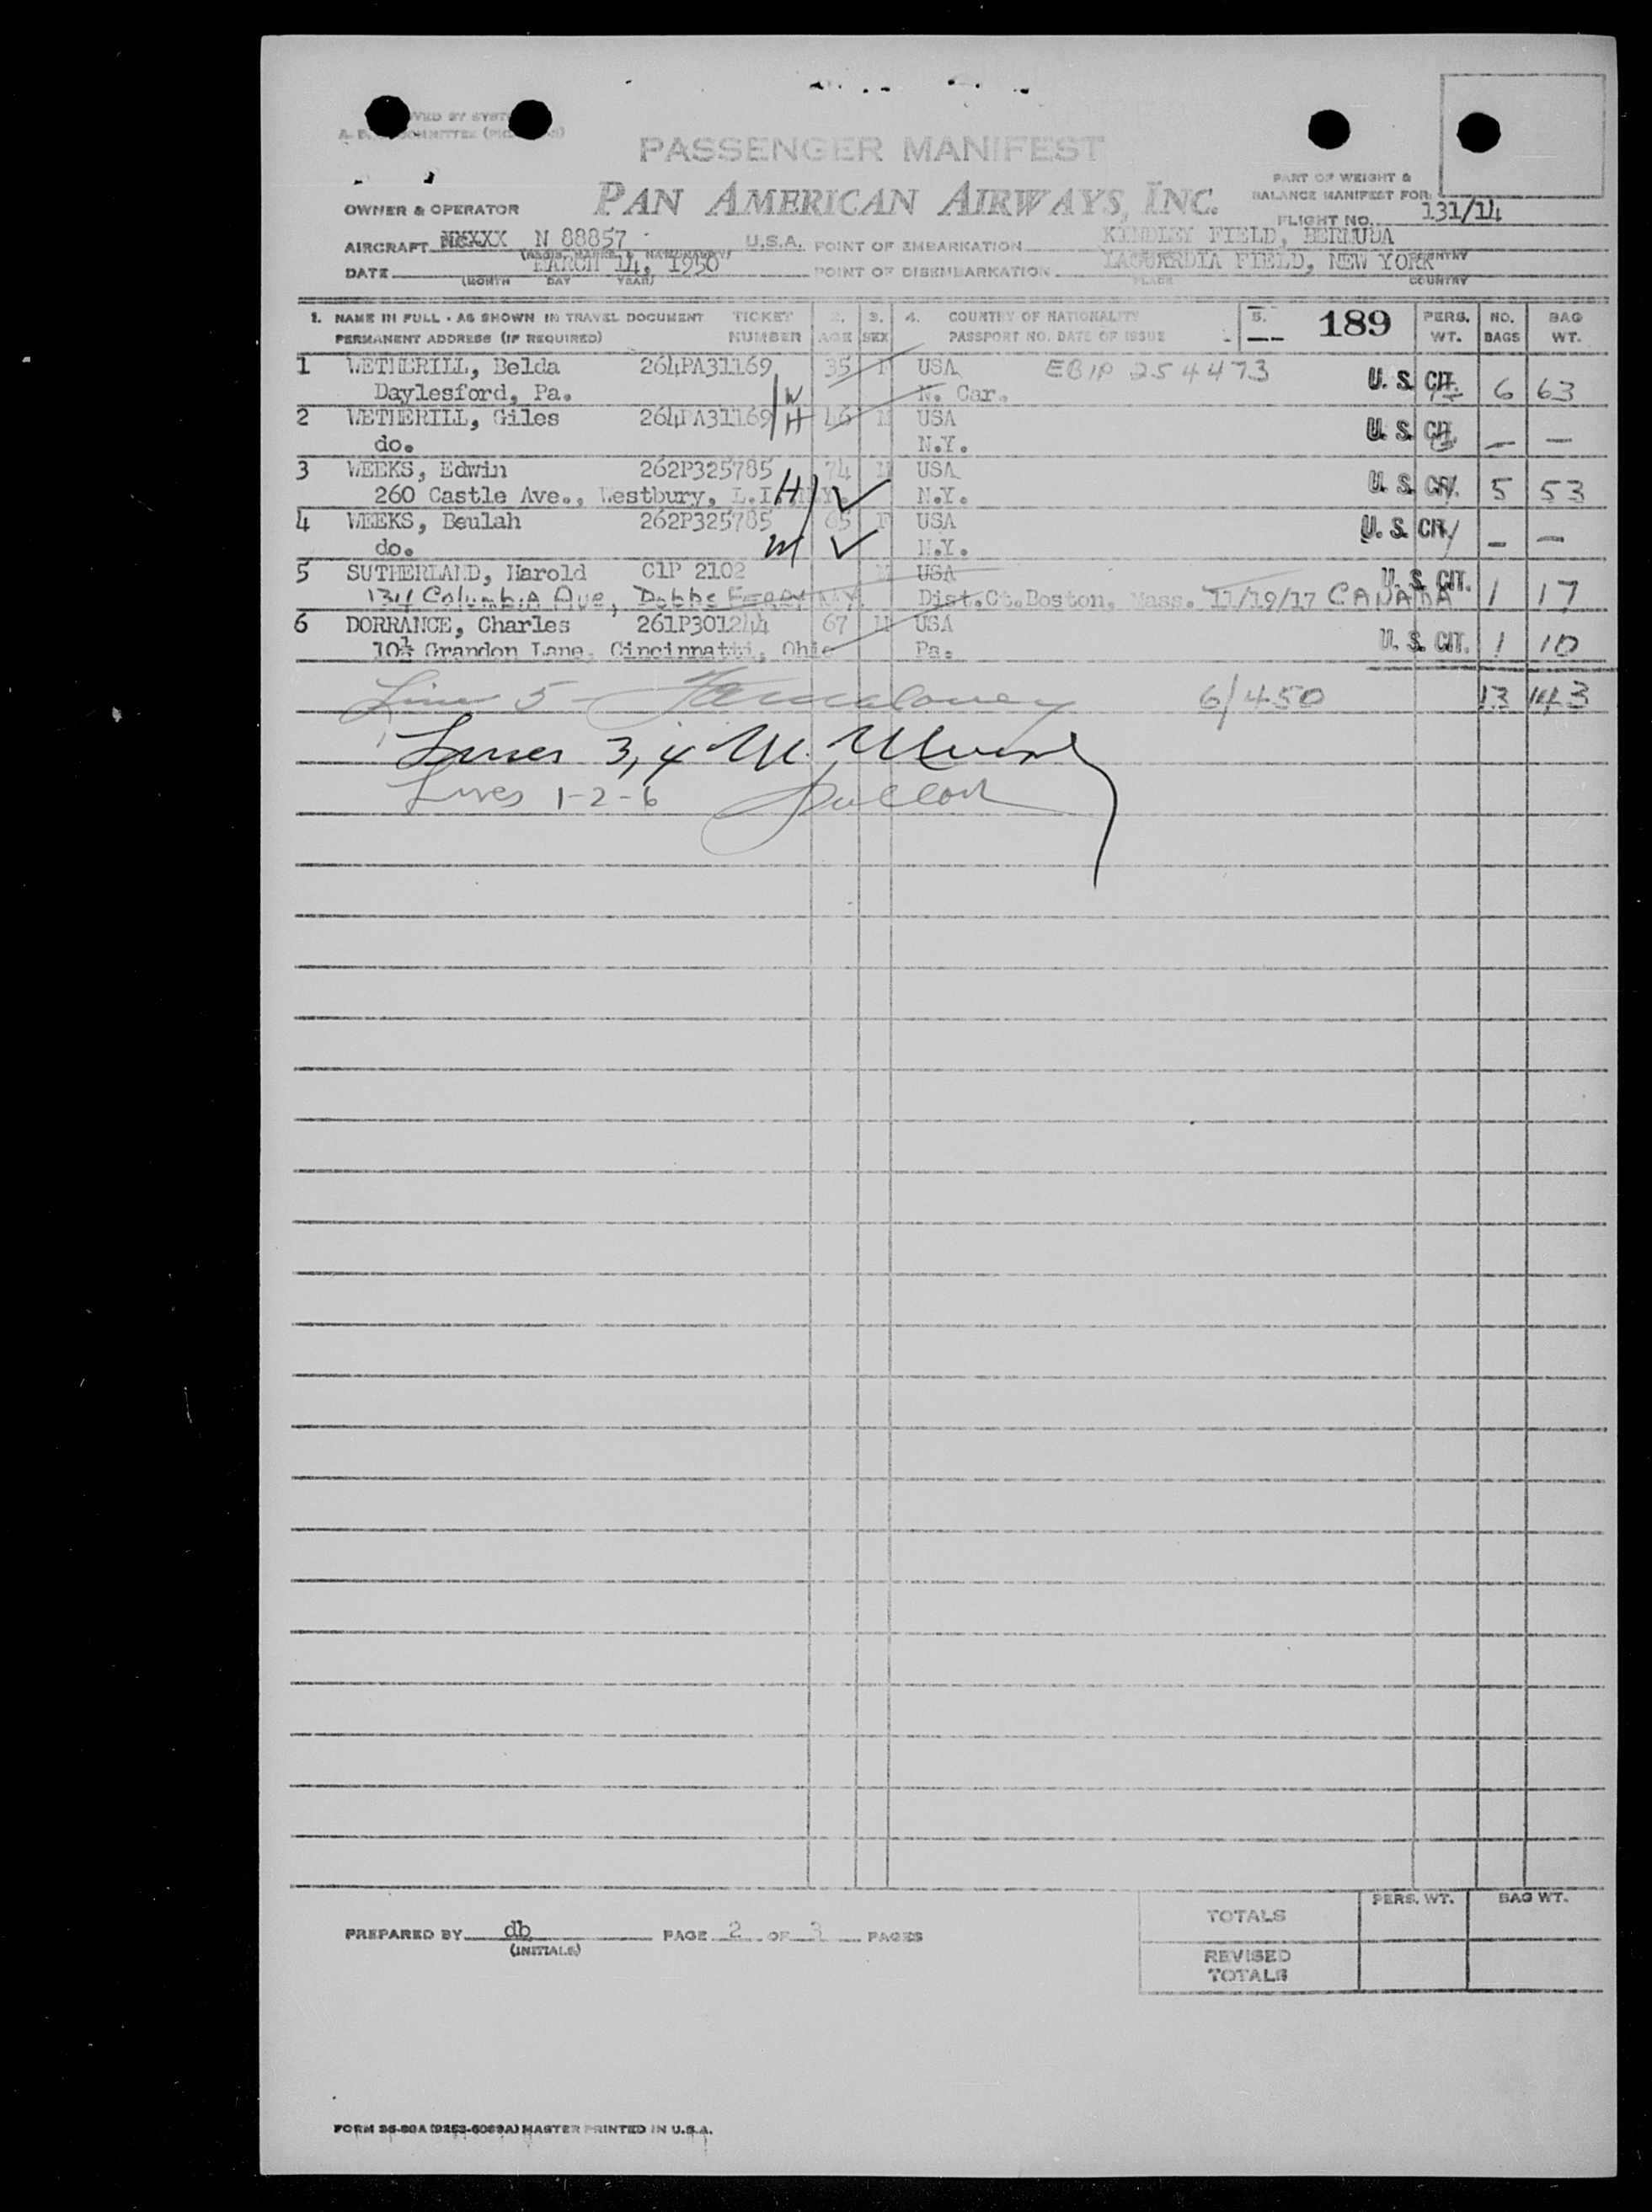 PASSENGER MANIFEST
PAN AMERICAN AIRWAYS, INC.
PART OF WEIGHT &
BALANCE MANIFEST FOR:
OWNER & OPERATOR
FLIGHT NO. 131/14
AIRCRAFT N 88857 U.S.A. POINT OF EMBARKATION KINDLEY FIELD, BERMUDA
DATE MARCH 14, 1950 POINT OF DISEMBARKATION LAGUARDIA FIELD, NEW YORK
(MONTH DAY YEAR) PLACE COUNTRY
1. NAME IN FULL - AS SHOWN IN TRAVEL DOCUMENT TICKET 2. 3. 4. COUNTRY OF NATIONALITY 5. 189 PERS. NO. BAG
PERMANENT ADDRESS (IF REQUIRED) NUMBER AGE SEX PASSPORT NO. DATE OF ISSUE WT. BAGS WT.
1 WETHERILL, Belda 264PA31169 35 F USA EBIP 254473 U. S. CIT. 6 63
Daylesford, Pa. W N. Car.
2 WETHERILL, Giles 264PA31169 H 46 M USA U. S. CIT. — —
do. N.Y.
3 WEEKS, Edwin 262P325785 74 M USA U. S. CIT. 5 53
260 Castle Ave., Westbury, L.I. H N.Y.
4 WEEKS, Beulah 262P325785 65 F USA U. S. CIT. — —
do. N.Y.
5 SUTHERLAND, Harold C1P 2102 M USA U. S. CIT. 1 17
134 Columbia Ave, Dobbs Ferry N.Y. Dist.Ct.Boston, Mass. 11/19/17 CANADA
6 DORRANCE, Charles 261P301244 67 M USA U. S. CIT. 1 10
10½ Grandon Lane, Cincinnatti, Ohio Pa.
Line 5 - 6/450 13 143
Lines 3, 4
Lines 1-2-6
PERS. WT. BAG WT.
TOTALS
PREPARED BY db PAGE 2 OF 3 PAGES
(INITIALS)
REVISED
TOTALS
MASTER PRINTED IN U.S.A.